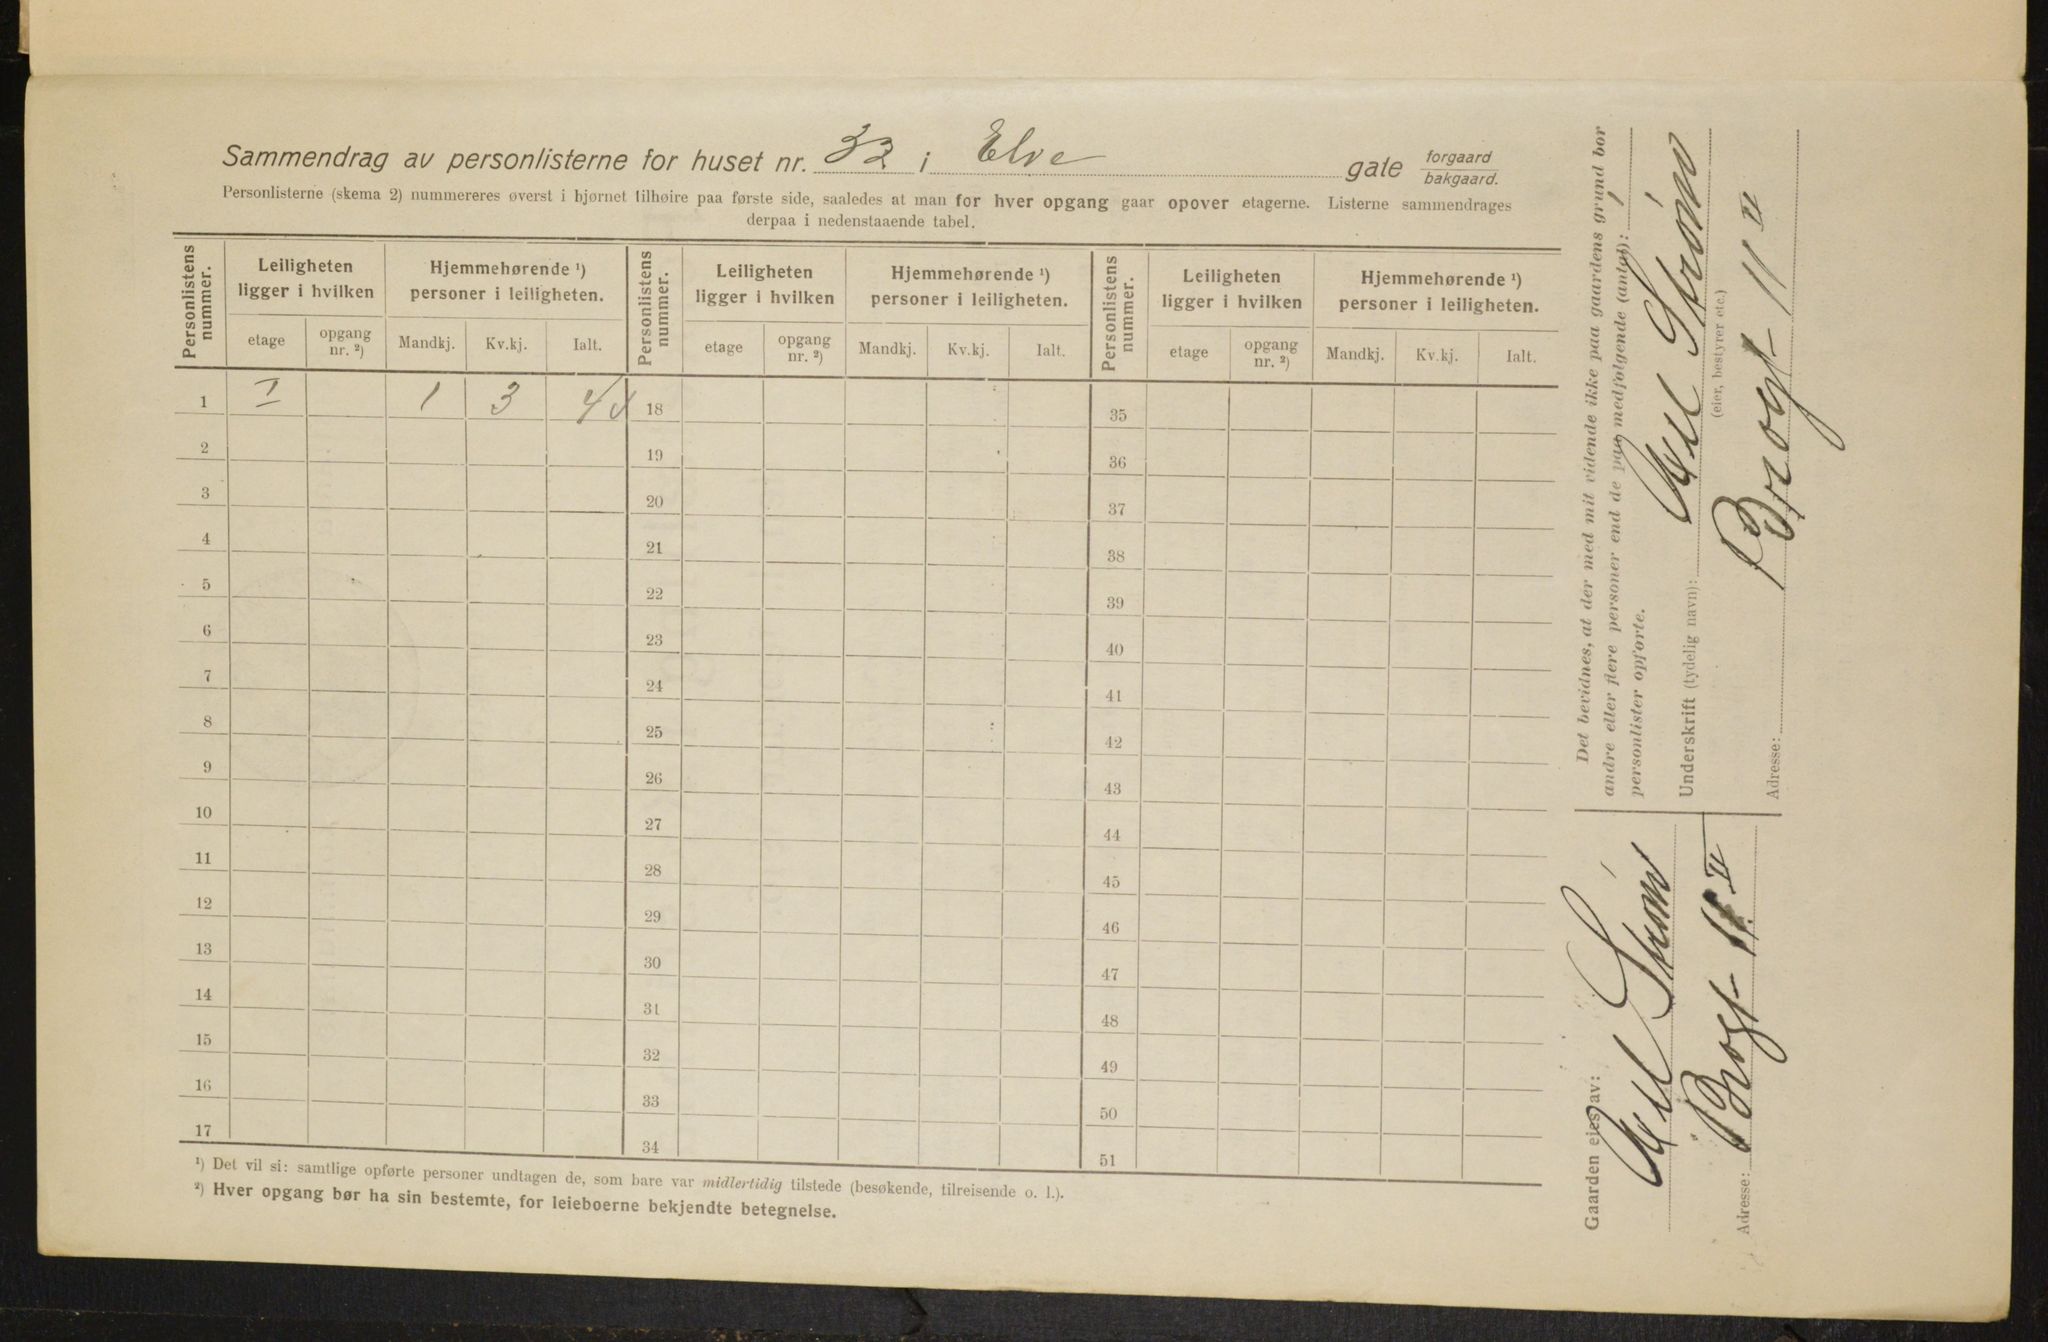 Sammendrag av personlisterne for huset nr. 33 i Elve gate forgaard
bakgaard.
Personlisterne (skema 2) nummereres øverst i hjørnet tilhøire paa første side, saaledes at man for hver opgang gaar opover etagerne. Listerne sammendrages
derpaa i nedenstaaende tabel.
Personlistens nummer. Leiligheten ligger i hvilken Hjemmehørende ¹) personer i leiligheten. Personlistens nummer. Leiligheten ligger i hvilken Hjemmehørende ¹) personer i leiligheten. Personlistens nummer. Leiligheten ligger i hvilken Hjemmehørende ¹) personer i leiligheten.
etage opgang nr. ²) Mandkj. Kv.kj. Ialt. etage opgang nr. ²) Mandkj. Kv.kj. Ialt. etage opgang nr. ²) Mandkj. Kv.kj. Ialt.
1 I 1 3 4 18 35
2 19 36
3 20 37
4 21 38
5 22 39
6 23 40
7 24 41
8 25 42
9 26 43
10 27 44
11 28 45
12 29 46
13 30 47
14 31 48
15 32 49
16 33 50
17 34 51
¹) Det vil si: samtlige opførte personer undtagen de, som bare var midlertidig tilstede (besøkende, tilreisende o. l.).
²) Hver opgang bør ha sin bestemte, for leieboerne bekjendte betegnelse.
Det bevidnes, at der med mit vidende ikke paa gaardens grund bor
andre eller flere personer end de paa medfølgende (antal): 1
personlister opførte.
Underskrift (tydelig navn): Axel Strøm
(eier, bestyrer etc.)
Adresse: 11 II
Gaarden eies av:
Axel Strøm
Adresse: 11 II